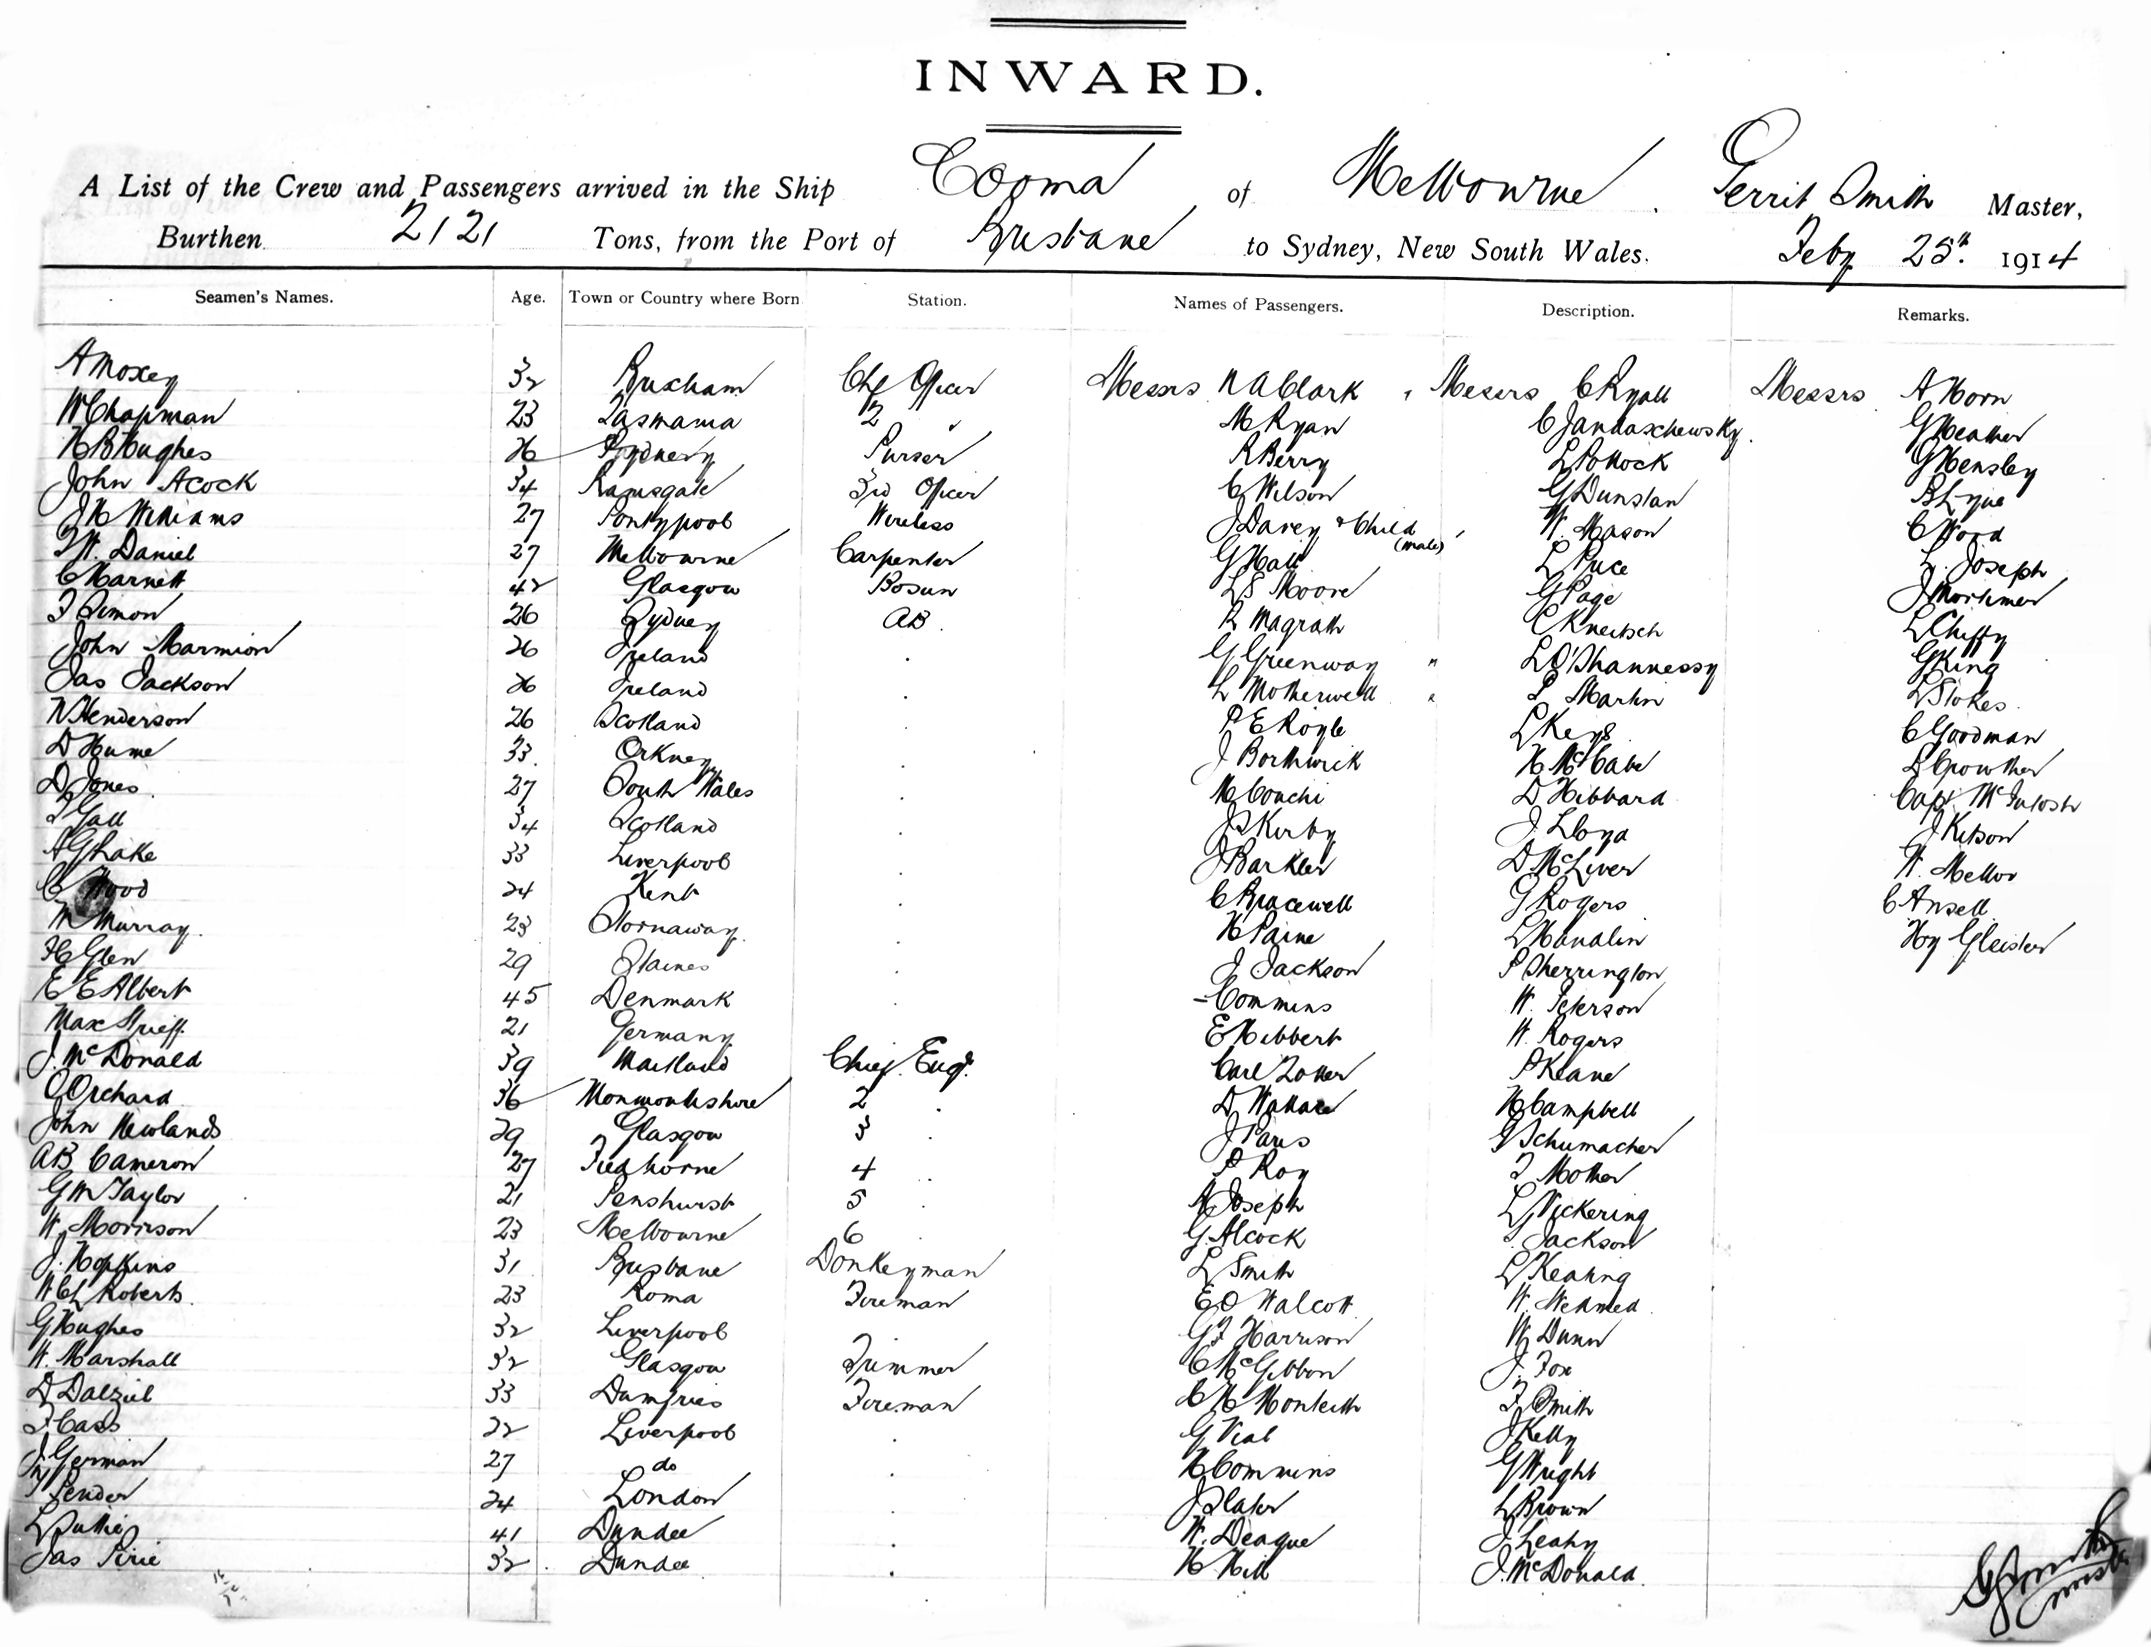 INWARD.
A List of the Crew and Passengers arrived in the Ship Cooma of Melbourne. Gerrit Smith Master,
Burthen 2121 Tons, from the Port of Brisbane to Sydney, New South Wales. Feby 25th 1914
Seamen's Names. Age. Town or Country where Born Station. Names of Passengers. Description. Remarks.
A Moxey 32 Brixham Chf Officer Messrs N A Clark , Messrs C Ryall Messrs A Horn
W Chapman 23 Tasmania 2 " M Ryan C Jandaschewsky. G Heather
H B Hughes 26 Sydney Purser R Berry L Pollock G Hensley
John Acock 34 Ramsgate 3rd Officer C Wilson G Dunstan B Lyne
J H Williams 27 Pontypool Wireless J Davey & Child (male) W. Mason C Wood
W. Daniel 27 Melbourne Carpenter G Hall L Price L. Joseph
C Marnett 42 Glasgow Bosun L S Moore G Page J Mortimer
F Simon 26 Sydney AB. R Magrath C Kneitsch L Chiffy
John Marmion 26 Ireland . G Greenway " L O'Shannessy G King
Jas Jackson 26 Ireland . L Motherwell " L Martin L Stokes.
N Henderson 26 Scotland . P E Royle L Keys C Goodman
D Hume 33. Orkney . J Borthwick H McCabe L Crowther
D Jones. 27 South Wales . M Couchi D Hibbard Capt McIntosh
Gall 34 Scotland . J S Kirby J Lloyd J Kitson
A G Lake 33 Liverpool . J Barkler D McLiver W. Mellor
C Wood 24 Kent . C Bracewell G Rogers C Ansell
M Murray. 23 Stornaway. . H Paine L Hanalin Hy Gleister
H Glen 29 Staines . J Jackson P Sherrington
E E Albert 45 Denmark . – Commins W. Peterson
Max Strieff. 21 Germany E Hibbert W. Rogers
J. McDonald 39 Maitland Chief Eng. Carl Zoller P Keane
O Orchard 36 Monmouthshire 2 . D Wallace H Campbell
John Newlands 29 Glasgow 3 . J Paris Schumacher
A B Cameron 27 4 . P Roy Mother
G M Taylor 21 Penshurst 5 . A Joseph L Vickering
W. Morrison 23 Melbourne 6 G. Alcock Jackson
J. Hopkins 31 Brisbane Donkeyman L Smith L Keating
Roberts. 23 Roma Fireman E O Walcott W.
G Hughes 32 Liverpool G F Harrison W Dunn
W. Marshall 32 Glasgow Trimmer C McGibbon J. Fox
D Dalziel 33 Dumfries Fireman C H Monteith F Smith
F Cass 22 Liverpool . G Vial J Kelly
J German 27 do . H Commins G Wright
T Pender 24 London . J Slater L Brown
41 Dundee . W. Deague J Leahy
Jas Pirie 32. Dundee . H Hill J. McDonald.
G Smith
Master